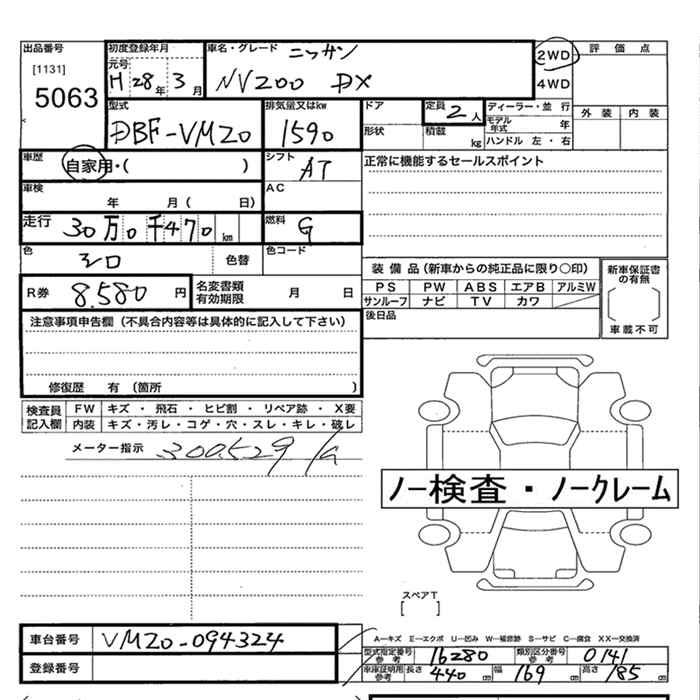 出品番号 初度登録年月 車名・グレード ニッサン 2WD 評価点
[1131] 元号
5063 H 28年 3月 NV200 DX 4WD
型式 排気量又はkw ドア 定員 2人 ディーラー・並行 外装 内装
DBF-VM20 1590 形状 積載 kg モデル年式 年
ハンドル 左・右
車歴 自家用・( ) シフト AT 正常に機能するセールスポイント
車検 年 月( 日) AC
走行 30万0千470 km 燃料 G
色 シロ 色替 色コード
装備品(新車からの純正品に限り○印) 新車保証書の有無
R券 8.580円 名変書類有効期限 月 日 PS PW ABS エアB アルミW
サンルーフ ナビ TV カワ
後日品 車載不可
注意事項申告欄(不具合内容等は具体的に記入して下さい)
修復歴 有 (箇所 )
検査員記入欄 FW キズ・飛石・ヒビ割・リペア跡・X要
内装 キズ・汚レ・コゲ・穴・スレ・キレ・破レ
メーター指示 300.529
ノー検査・ノークレーム
スペアT
[ ]
車台番号 VM20-094324
登録番号
A―キズ E―エクボ U―凹み W―補修跡 S―サビ C―腐食 XX―交換済
型式指定番号参考 16280 類別区分番号参考 0141
車庫証明用参考 長さ 440 cm 幅 169 cm 高さ 185 cm